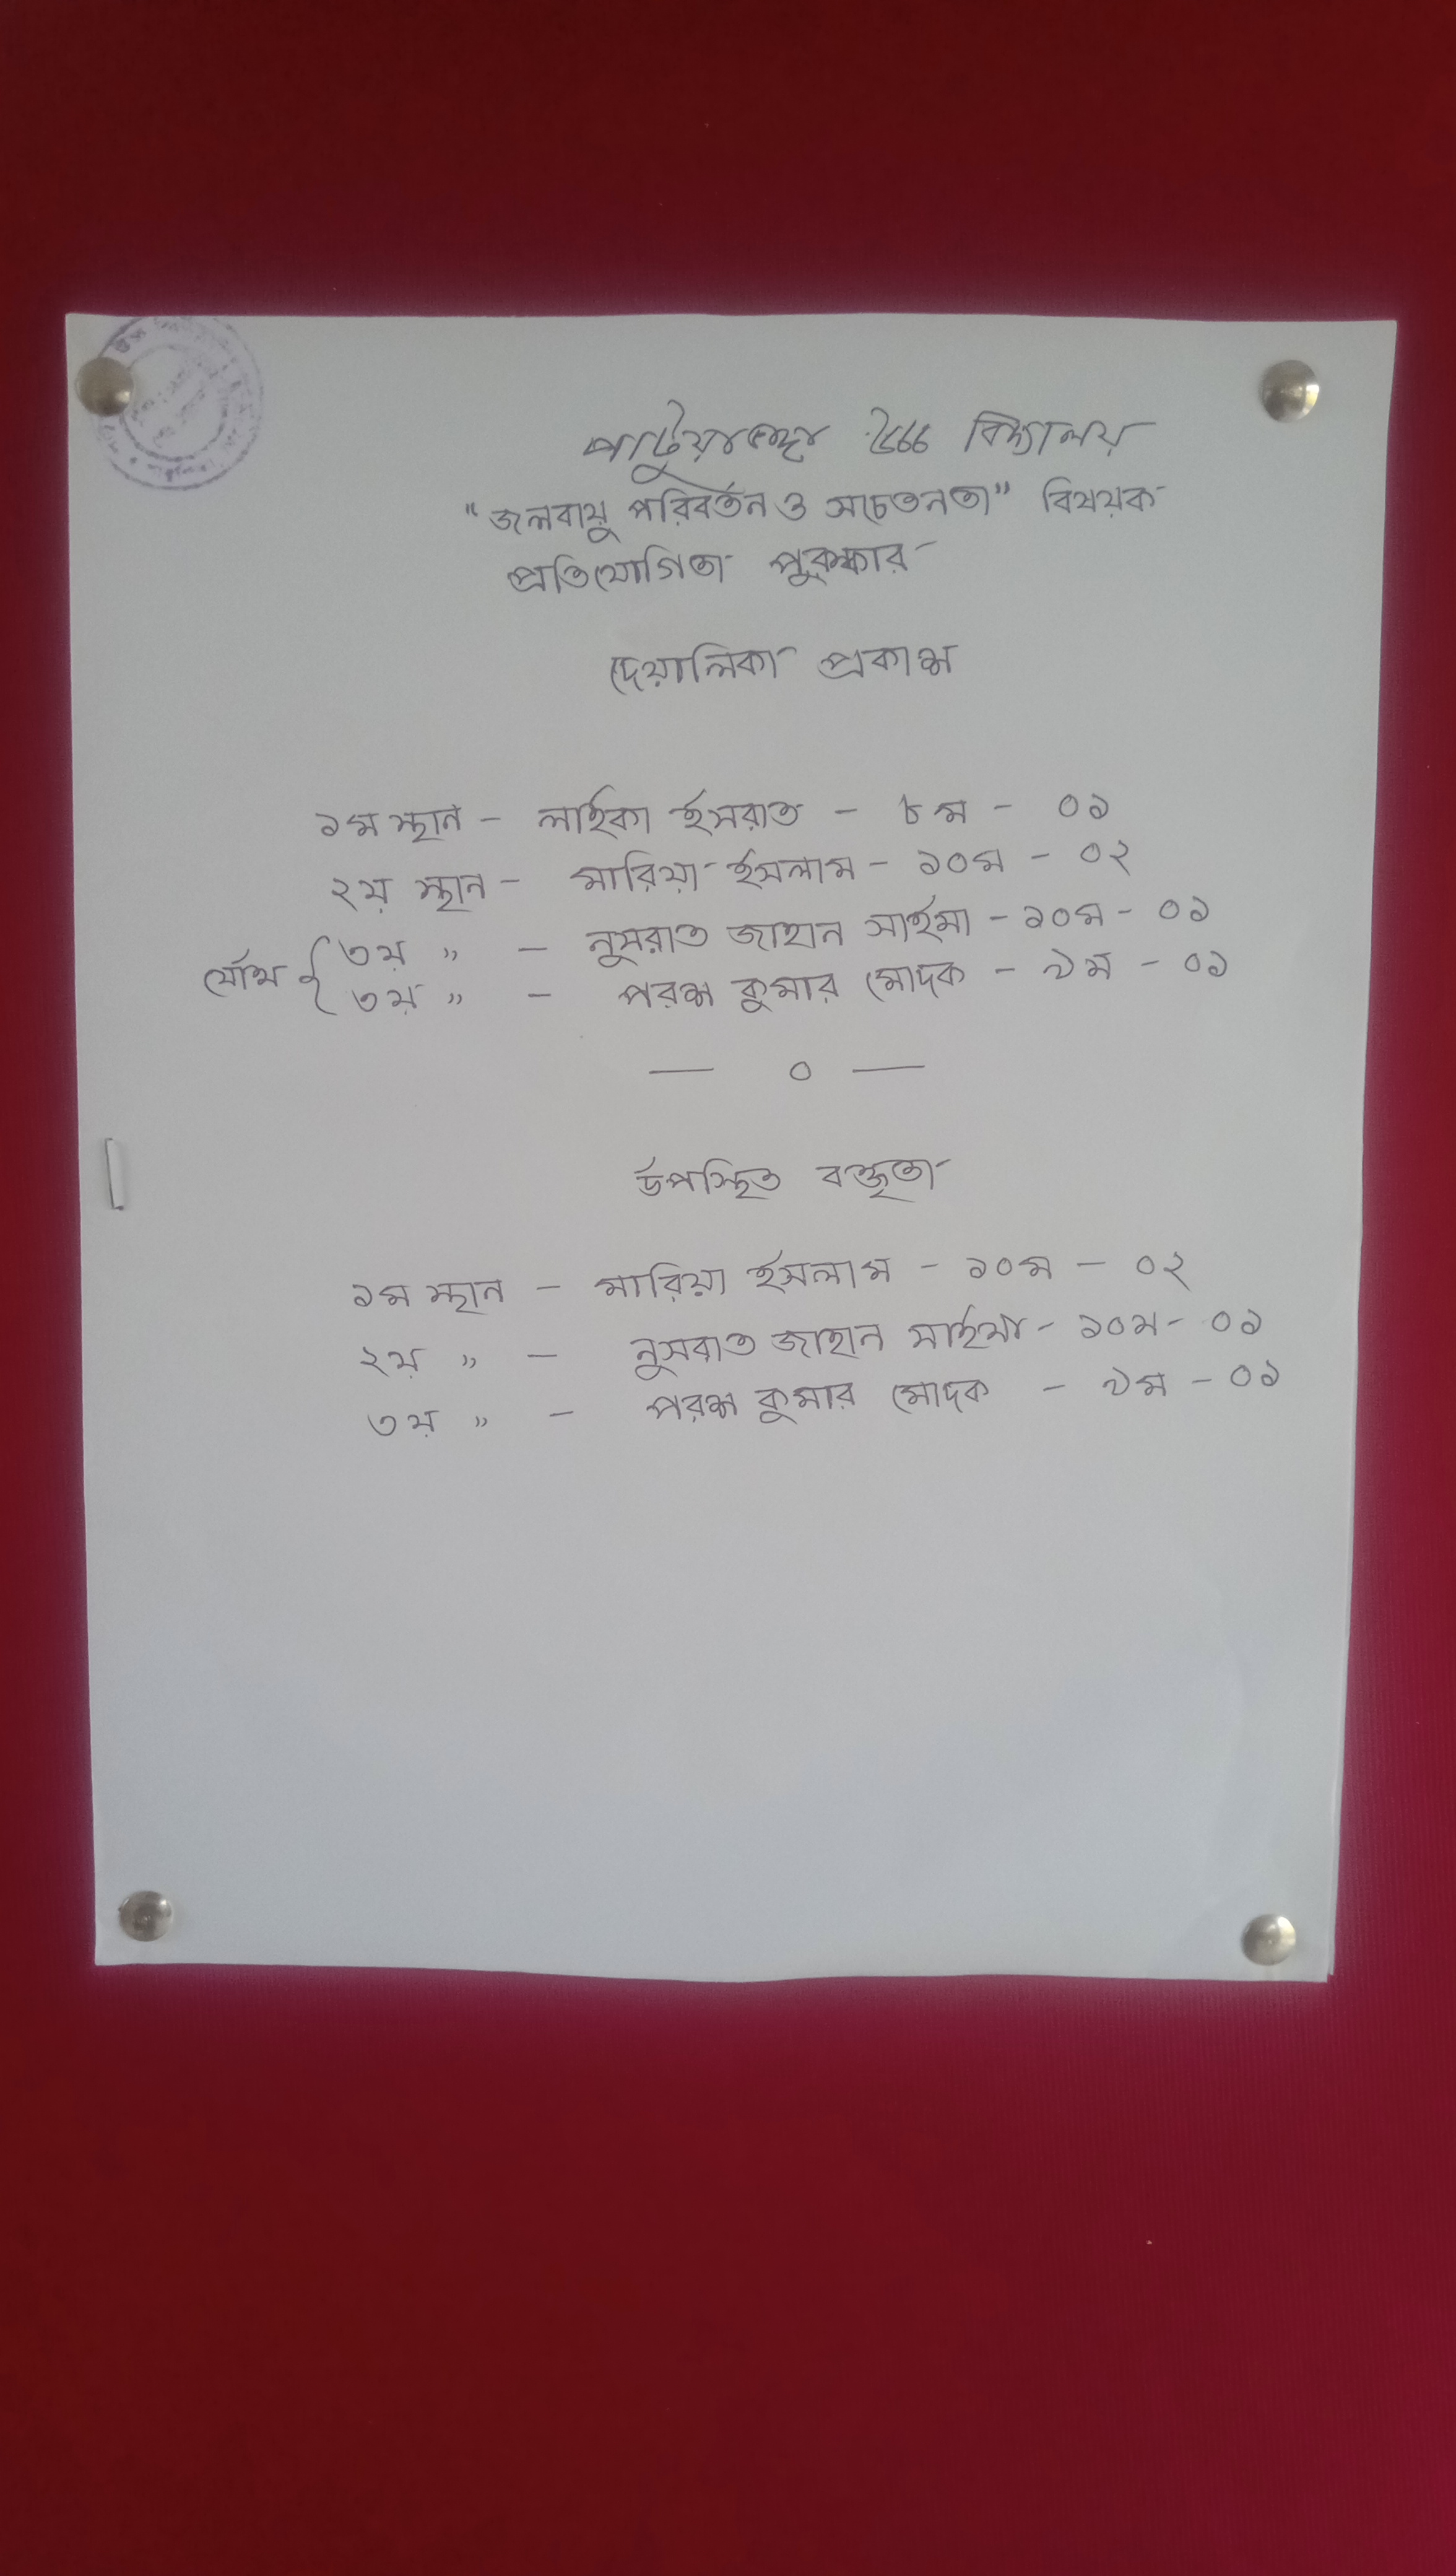 পাটুয়াভাঙ্গা উচ্চ বিদ্যালয়
"জলবায়ু পরিবর্তন ও সচেতনতা" বিষয়ক
প্রতিযোগিতা পুরস্কার
দেয়ালিকা প্রকাশ
১ম স্থান - লাইকা ইসরাত - ৮ম - ০১
২য় স্থান - মারিয়া ইসলাম - ১০ম - ০২
যৌথ { ৩য় " - নুসরাত জাহান সাইমা - ১০ম - ০১
৩য় " - পরশ কুমার মোদক - ৯ম - ০১
— ০ —
উপস্থিত বক্তৃতা
১ম স্থান - মারিয়া ইসলাম - ১০ম - ০২
২য় " - নুসরাত জাহান সাইমা - ১০ম - ০১
৩য় " - পরশ কুমার মোদক - ৯ম - ০১